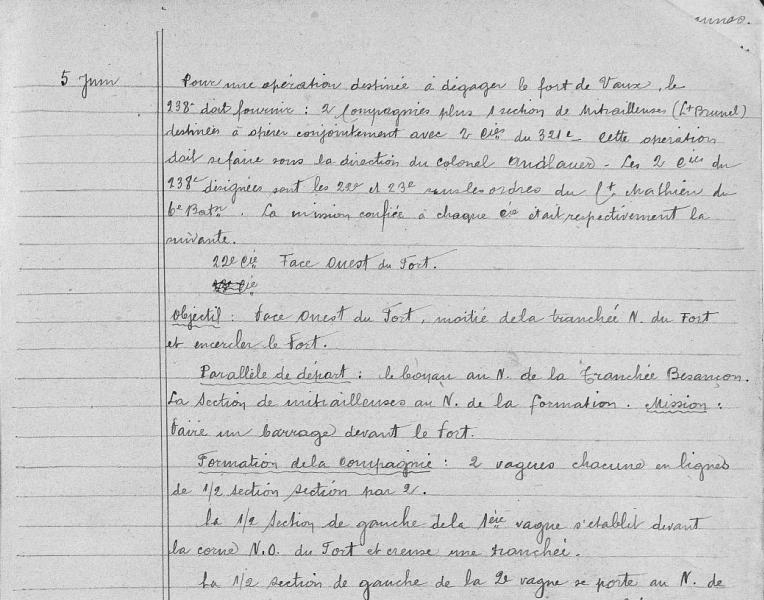 5 Juin
Pour une opération destinée à dégager le fort de Vaux, le
238e doit fournir : 2 Compagnies plus 1 section de Mitrailleuses (Lt Brunel)
destinées à opérer conjointement avec 2 Cies du 321e Cette opération
doit se faire sous la direction du colonel Andlauer - Les 2 Cies du
238e désignées sont les 22e et 23e sous les ordres du Ct Mathieu du
6e Batn. La mission confiée à chaque Cie était respectivement la
suivante.
22e Cie Face Ouest du Fort.
Objectif : Face Ouest du Fort, moitié de la tranchée N. du Fort
et encercler le Fort.
Parallèle de départ : le boyau au N. de la Tranchée Besançon.
La Section de mitrailleuses au N. de la formation. Mission :
Faire un barrage devant le Fort.
Formation de la Compagnie : 2 vagues chacune en lignes
de 1/2 section section par 2.
La 1/2 Section de gauche de la 1ère vague s'établit devant
la corne N.O. du Fort et creuse une tranchée.
La 1/2 section de gauche de la 2e vague se porte au N. de